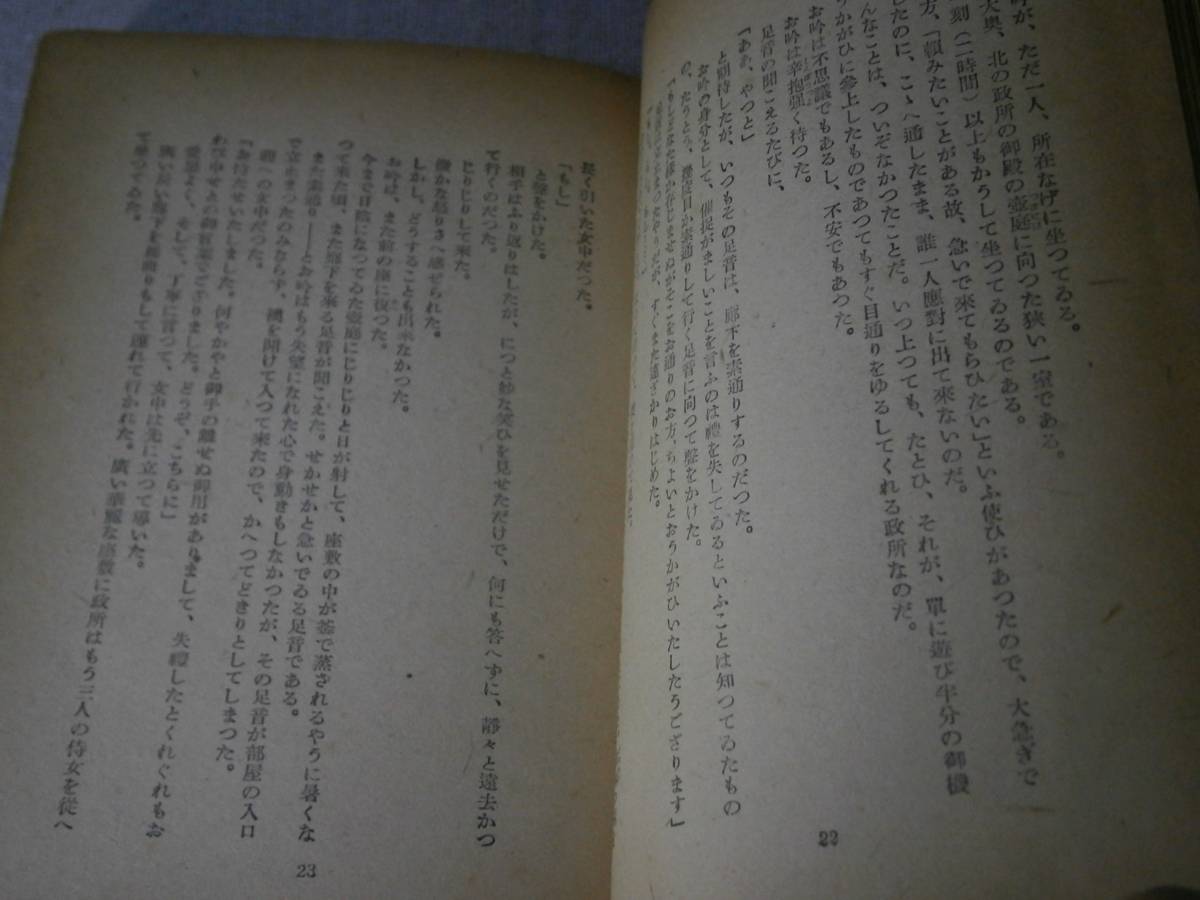 が、ただ一人、所在なげに坐つてゐる。
大奥、北の政所の御殿の壺庭に向つた狭い一室である。
刻(二時間)以上もかうして坐つてゐるのである。
方、「頼みたいことがある故、急いで來てもらひたい」といふ使ひがあつたので、大急ぎで
したのに、こゝへ通したまま、誰一人應對に出て來ないのだ。
んなことは、つひぞなかつたことだ。いつ上つても、たとひ、それが、單に遊び半分の御機
うかがひに參上したものであつてもすぐ目通りをゆるしてくれる政所なのだ。
お吟は不思議でもあるし、不安でもあつた。
お吟は辛抱强く待つた。
足音の聞こえるたびに、
「ああ、やつと」
と期待したが、いつもその足音は、廊下を素通りするのだつた。
お吟の身分として、催促がましいことを言ふのは禮を失してゐるといふことは知つてゐたもの
の、たうとう、幾度目か素通りして行く足音に向つて聲をかけた。
「もし、どなた樣か存じませぬがそこをお通りのお方、ちよいとおうかがひいたしたうござります」
すぐまた遠ざかりはじめた。
長く引いた女中だつた。
「もし」
と聲をかけた。
相手はふり返りはしたが、につと妙な笑ひを見せただけで、何にも答へずに、靜々と遠去かつ
て行くのだつた。
じりじりして來た。
微かな怒りさへ感ぜられた。
しかし、どうすることも出來なかつた。
お吟は、また前の座に復つた。
今まで日陰になつてゐた壺庭にじりじりと日が射して、座敷の中が釜で蒸されるやうに暑くな
つて來た頃、また廊下を來る足音が聞こえた。せかせかと急いでゐる足音である。
また素通り――とお吟はもう失望になれた心で身動きもしなかつたが、その足音が部屋の入口
で立止まつたのみならず、襖を開けて入つて來たので、かへつてどきりとしてしまつた。
前への女中だつた。
「お待たせいたしました。何やかやと御手の離せぬ御用がありまして、失禮したとくれぐれもお
わび申せよの御言葉でござりました。どうぞ、こちらに」
愛想よく、そして、丁寧に言つて、女中は先に立つて導いた。
廣い長い廊下を幾曲りもして連れて行かれた。廣い華麗な座敷に政所はもう三人の侍女を從へ
て坐つてゐた。
22
23